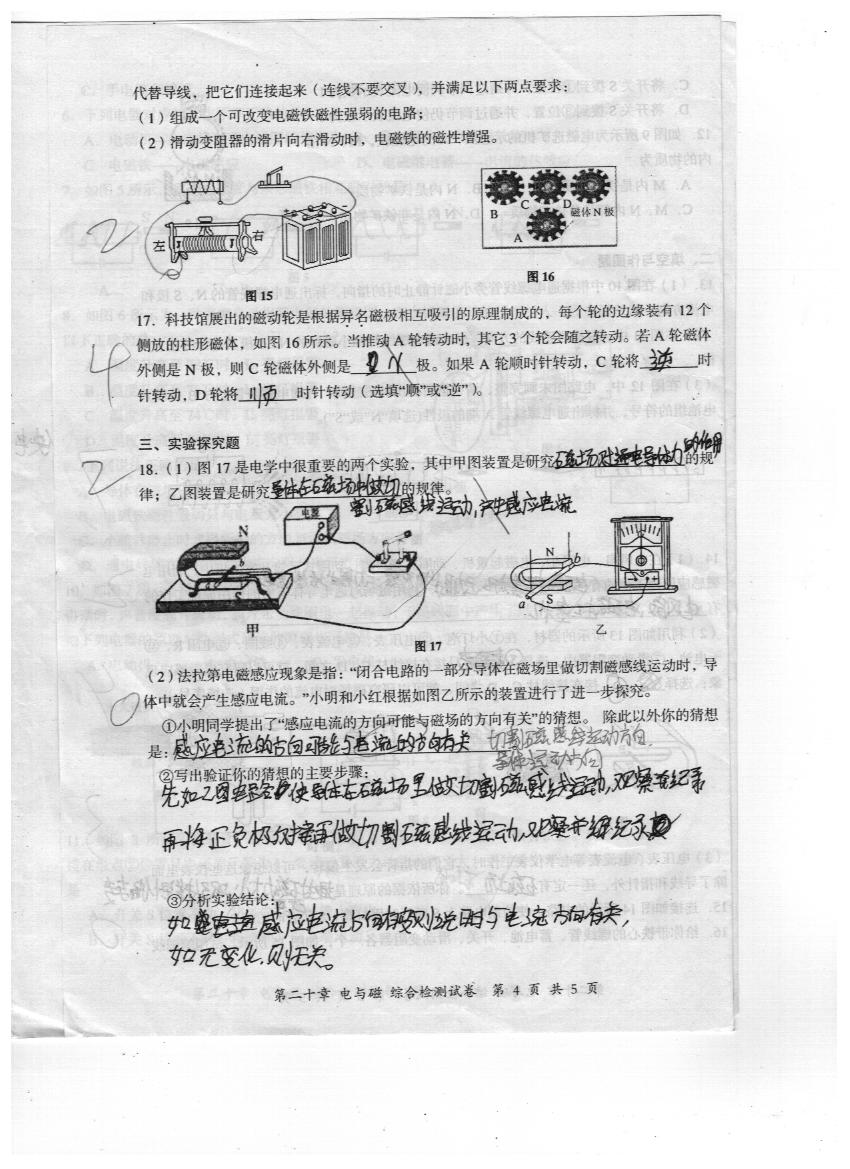 代替导线，把它们连接起来（连线不要交叉），并满足以下两点要求：
（1）组成一个可改变电磁铁磁性强弱的电路；
（2）滑动变阻器的滑片向右滑动时，电磁铁的磁性增强。
2
左
右
B
C
D
A
磁体N极
图15
图16
17．科技馆展出的磁动轮是根据异名磁极相互吸引的原理制成的，每个轮的边缘装有12个
侧放的柱形磁体，如图16所示。当推动A轮转动时，其它3个轮会随之转动。若A轮磁体
外侧是N极，则C轮磁体外侧是 N 极。如果A轮顺时针转动，C轮将 逆 时
针转动，D轮将 顺 时针转动（选填“顺”或“逆”）。
4
三、实验探究题
2
18.（1）图17是电学中很重要的两个实验，其中甲图装置是研究磁场对通电导体力的作用的规
律；乙图装置是研究导体在磁场中做切的规律。
割磁感线运动,产生感应电流
电源
N
甲
N
S
a
b
乙
图17
（2）法拉第电磁感应现象是指：“闭合电路的一部分导体在磁场里做切割磁感线运动时，导
体中就会产生感应电流。”小明和小红根据如图乙所示的装置进行了进一步探究。
0
①小明同学提出了“感应电流的方向可能与磁场的方向有关”的猜想。 除此以外你的猜想
是：感应电流的方向可能与电流的方向有关 切割磁感线运动方向
导体运动方向
②写出验证你的猜想的主要步骤：
先如乙图 使导体在磁场里做切割磁感线运动,观察并纪录
再将正负极对接再做切割磁感线运动,观察并纪录
③分析实验结论：
如 感应电流方向有变则说明与电流方向有关,
如无变化,则无关。
第二十章 电与磁 综合检测试卷 第4页 共5页